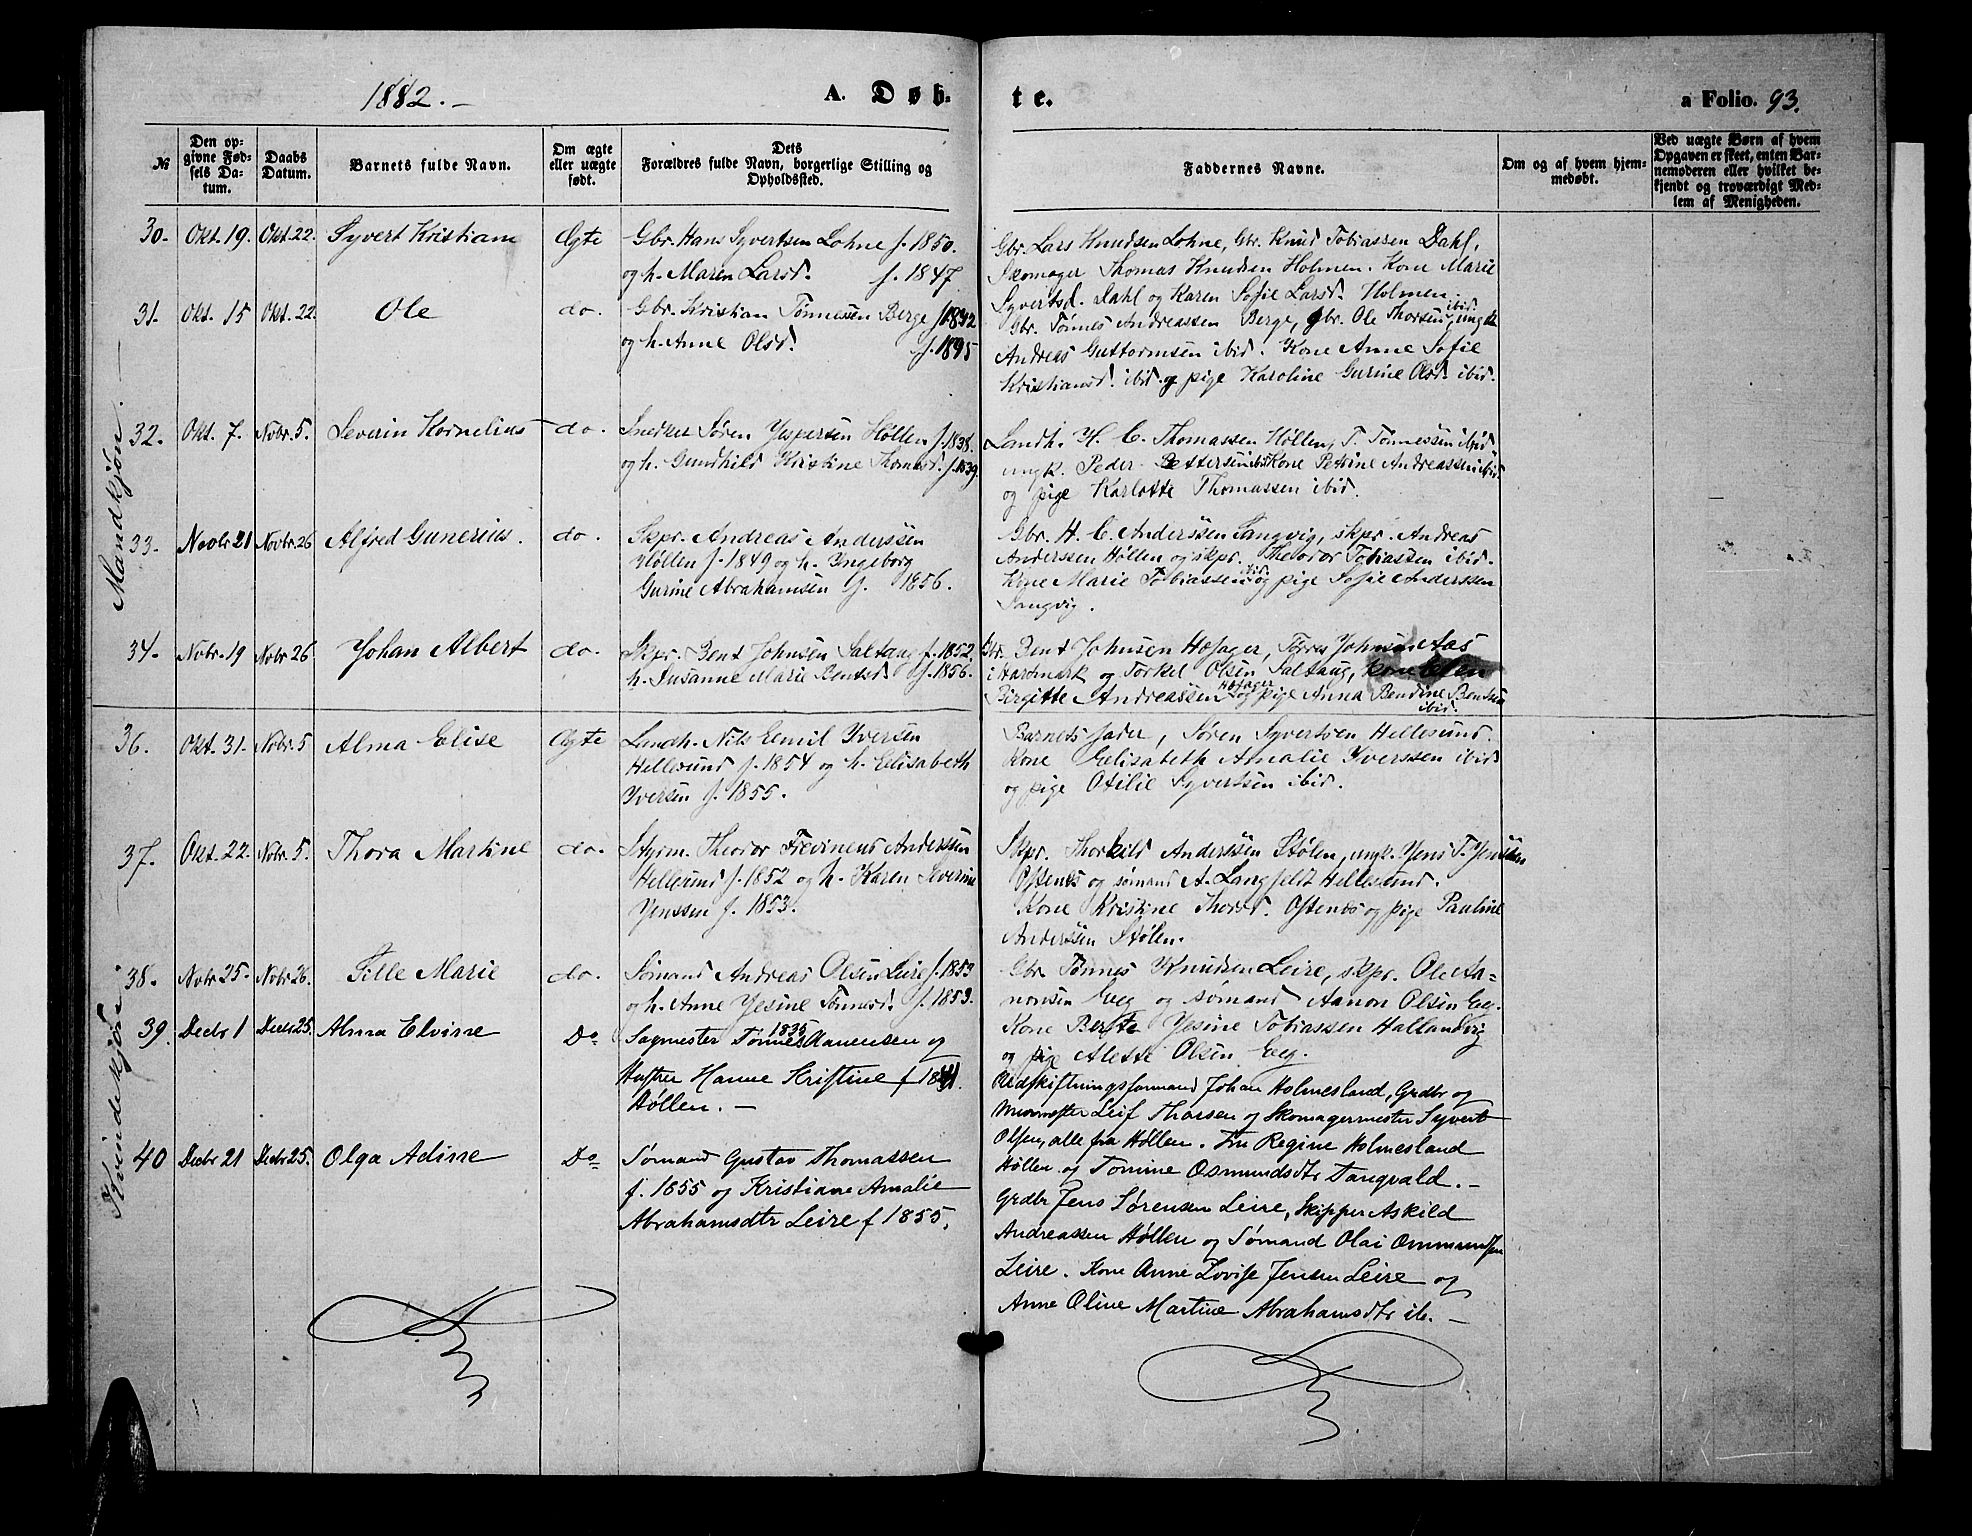 1882. —
A. Døb-
te.
a Folio. 93.
№
Den op-
givne Fød-
sels Da-
tum.
Daabs
Datum.
Barnets fulde Navn.
Om ægte
eller uægte
født.
Dets
Forældres fulde Navn, borgerlige Stilling og
Opholdssted.
Faddernes Navne.
Om og af hvem hjem-
medøbt.
Ved uægte Børn af hvem
Opgaven er skeet, enten Bar-
nemoderen eller hvilket be-
kjendt og troværdigt Med-
lem af Menigheden.
Mandkjøn. —
30. Okt. 19. Okt. 22. Syvert Kristian Ægte
Gbr. Hans Syvertsen Lohne f. 1850.
og h. Maren Larsd. f. 1847
Gbr. Lars Knudsen Lohne, Gbr. Knud Tobiassen Dahl,
Skomager Thomas Knudsen Holmen. Kone Marie
Syvertsd. Dahl og Karen Sofie Larsd. Holmen.
31. Okt. 15 Okt. 22. Ole do.
Gbr. Kristian Tønnessen Berge f.
og h. Anne Olsd.
Gbr. Tønnes Andreassen Berge, gbr. Ole Thorsen ibid. ungk.
Andreas Guttormsen ibid. Kone Anne Sofie
Kristiansd. ibid. og pige Karoline Gurine Olsd. ibid.
32. Okt. 7. Nobr. 5. Severin Kornelius do.
Snedker Søren Jespersen Høllen f. 1838.
og h. Gundhild Kristine Thomasd. f. 1839.
Landh. H. C. Thomassen Høllen, T. Tønnessen ibid
ungk. Peder Pettersen ibid Kone Petrine Andreassen ibid.
og pige Karlotte Thomassen ibid.
33. Novbr 21 Novbr. 26 Alfred Gunerius. do.
Skpr. Andreas Anderssen
Høllen f. 1849 og h. Ingeborg
Gurine Abrahamsen f. 1856.
Gbr. H. C. Anderssen Langvig, skpr. Andreas
Anderssen Høllen og skpr. Theodor Tobiassen ibid.
Kone Marie Tobiassen ibid. og pige Sofie Anderssen
Langvig.
34. Nobr. 19 Nobr 26 Johan Albert do.
Skpr. Bent Johnsen Saltang f. 1852.
h. Susanne Marie Bentsd. f. 1856.
Gbr. Bent Johnsen Hofager, Tørres Johnsen Aas
i Hartmark og Torkel Olsen Saltaug, kone
Birgitte Andreassen Hofager og pige Anna Bendine Bentsen
ibid.
Kvindekjøn. —
36. Okt. 31. Nobr. 5 Alma Elise Ægte
Landh. Nils Emil Iversen
Hellesund f. 1854 og h. Elisabeth
Iversen f. 1855.
Barnets fader, Søren Syvertsen Hellesund.
Kone Elisabeth Amalie Iverssen ibid
og pige Otilie Syvertsen ibid.
37. Okt. 22. Nobr. 5. Thora Martine do.
Styrm. Theodor Anderssen
Hellesund f. 1852 og h. Karen Severine
Jenssen f. 1853.
Skpr. Thorkild Anderssen Stølen, ungk. Jens T. Jenssen
Oftenes og sømand A. Langfeldt Hellesund.
Kone Kristine Thorsd. Oftenes og pige Pauline
Anderssen Stølen.
38. Nobr 25. Nobr. 26. Tille Marie do.
Sømand Andreas Olsen Leire f. 1853
og h. Anne Jesine Tønnesd. f. 1853.
Gbr Tønnes Knudsen Leire, skpr. Ole Aa-
nonsen Eeg og sømand Aanon Olsen Eeg.
Kone Berte Jesine Tobiassen Hallandvig
og pige Alette Olsen Eeg.
39. Decbr 1 Decbr 25. Alma Elvine Do
Sagmester Tønnes 1835 Aanensen og
Hustru Hanne Kristine f 1841.
Høllen. —
Redskiftningsformand Johan Holmesland, Grdbr og
Murmester Leif Thorsen og Skomagermester Syvert
Olsen, alle fra Høllen. Fru Regine Holmesland
Høllen og Tomine Osmundsdtr Tangvald. —
40 Decbr 21 Decbr 25. Olga Adine Do
Sømand Gustav Thomassen
f. 1855 og Kristiane Amalie
Abrahamsdtr Leire f 1855.
Grdbr Jens Sørensen Leire, Skipper Askild
Andreassen Høllen og Sømand Olai Ommundsen
Leire. Kone Anne Lovise Jensen Leire og
Anne Oline Martine Abrahamsdtr ib. —